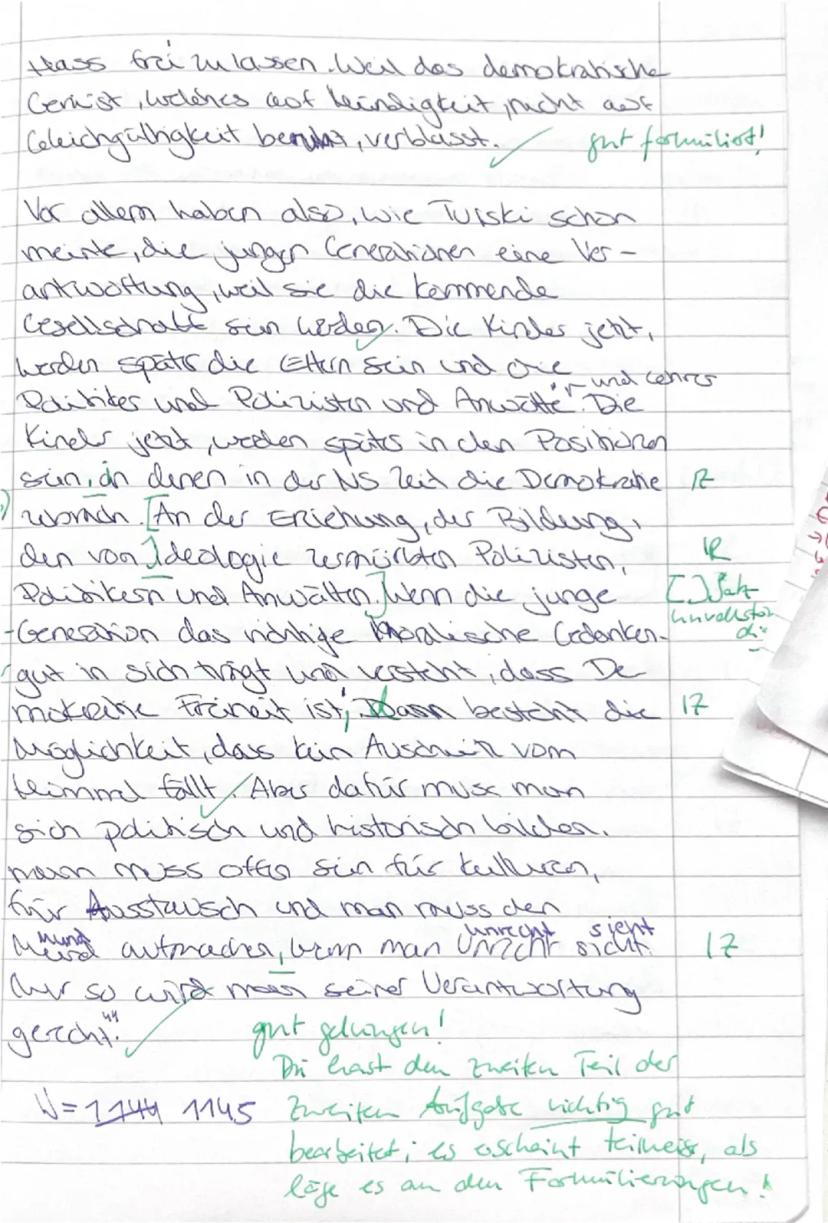 Hass frei zu lassen. Weil das demokratische
Gerüst, welches auf Mündigkeit, nicht auf
Gleichgültigkeit beruht, verblasst.
gut formuliert!
Vor allem haben also, wie Turski schon
meinte, die jungen Generationen eine Ver-
antwortung, weil sie die kommende
Gesellschaft sein werden. Die Kinder jetzt,
werden später die Eltern sein und die
und Lehrer
Politiker und Polizisten und Anwälte. Die
Kinder jetzt, werden später in den Positionen
sein, in denen in der NS Zeit die Demokratie
IZ
[An der Erziehung, der Bildung,
den von Ideologie zermürbten Polizisten,
IR
Politikern und Anwälten.] Wenn die junge
[ ] Satz
unvollstän
di-
Generation das richtige moralische Gedanken-
gut in sich trägt und versteht, dass De
mokratie Freiheit ist, dann besteht die
IZ
Möglichkeit, dass kein Auschwitz vom
Himmel fällt. Aber dafür muss man
sich politisch und historisch bilden.
man muss offen sein für Kulturen,
für Ausstausch und man muss den
Mund unrecht sieht
aufmachen, wenn man Unrecht sieht.
IZ
Nur so wird man seiner Verantwortung
gerecht."
gut gelungen!
Du hast den zweiten Teil der
W = 1144 1145
zweiten Aufgabe richtig gut
bearbeitet; es erscheint teilweise, als
läge es an den Formulierungen!